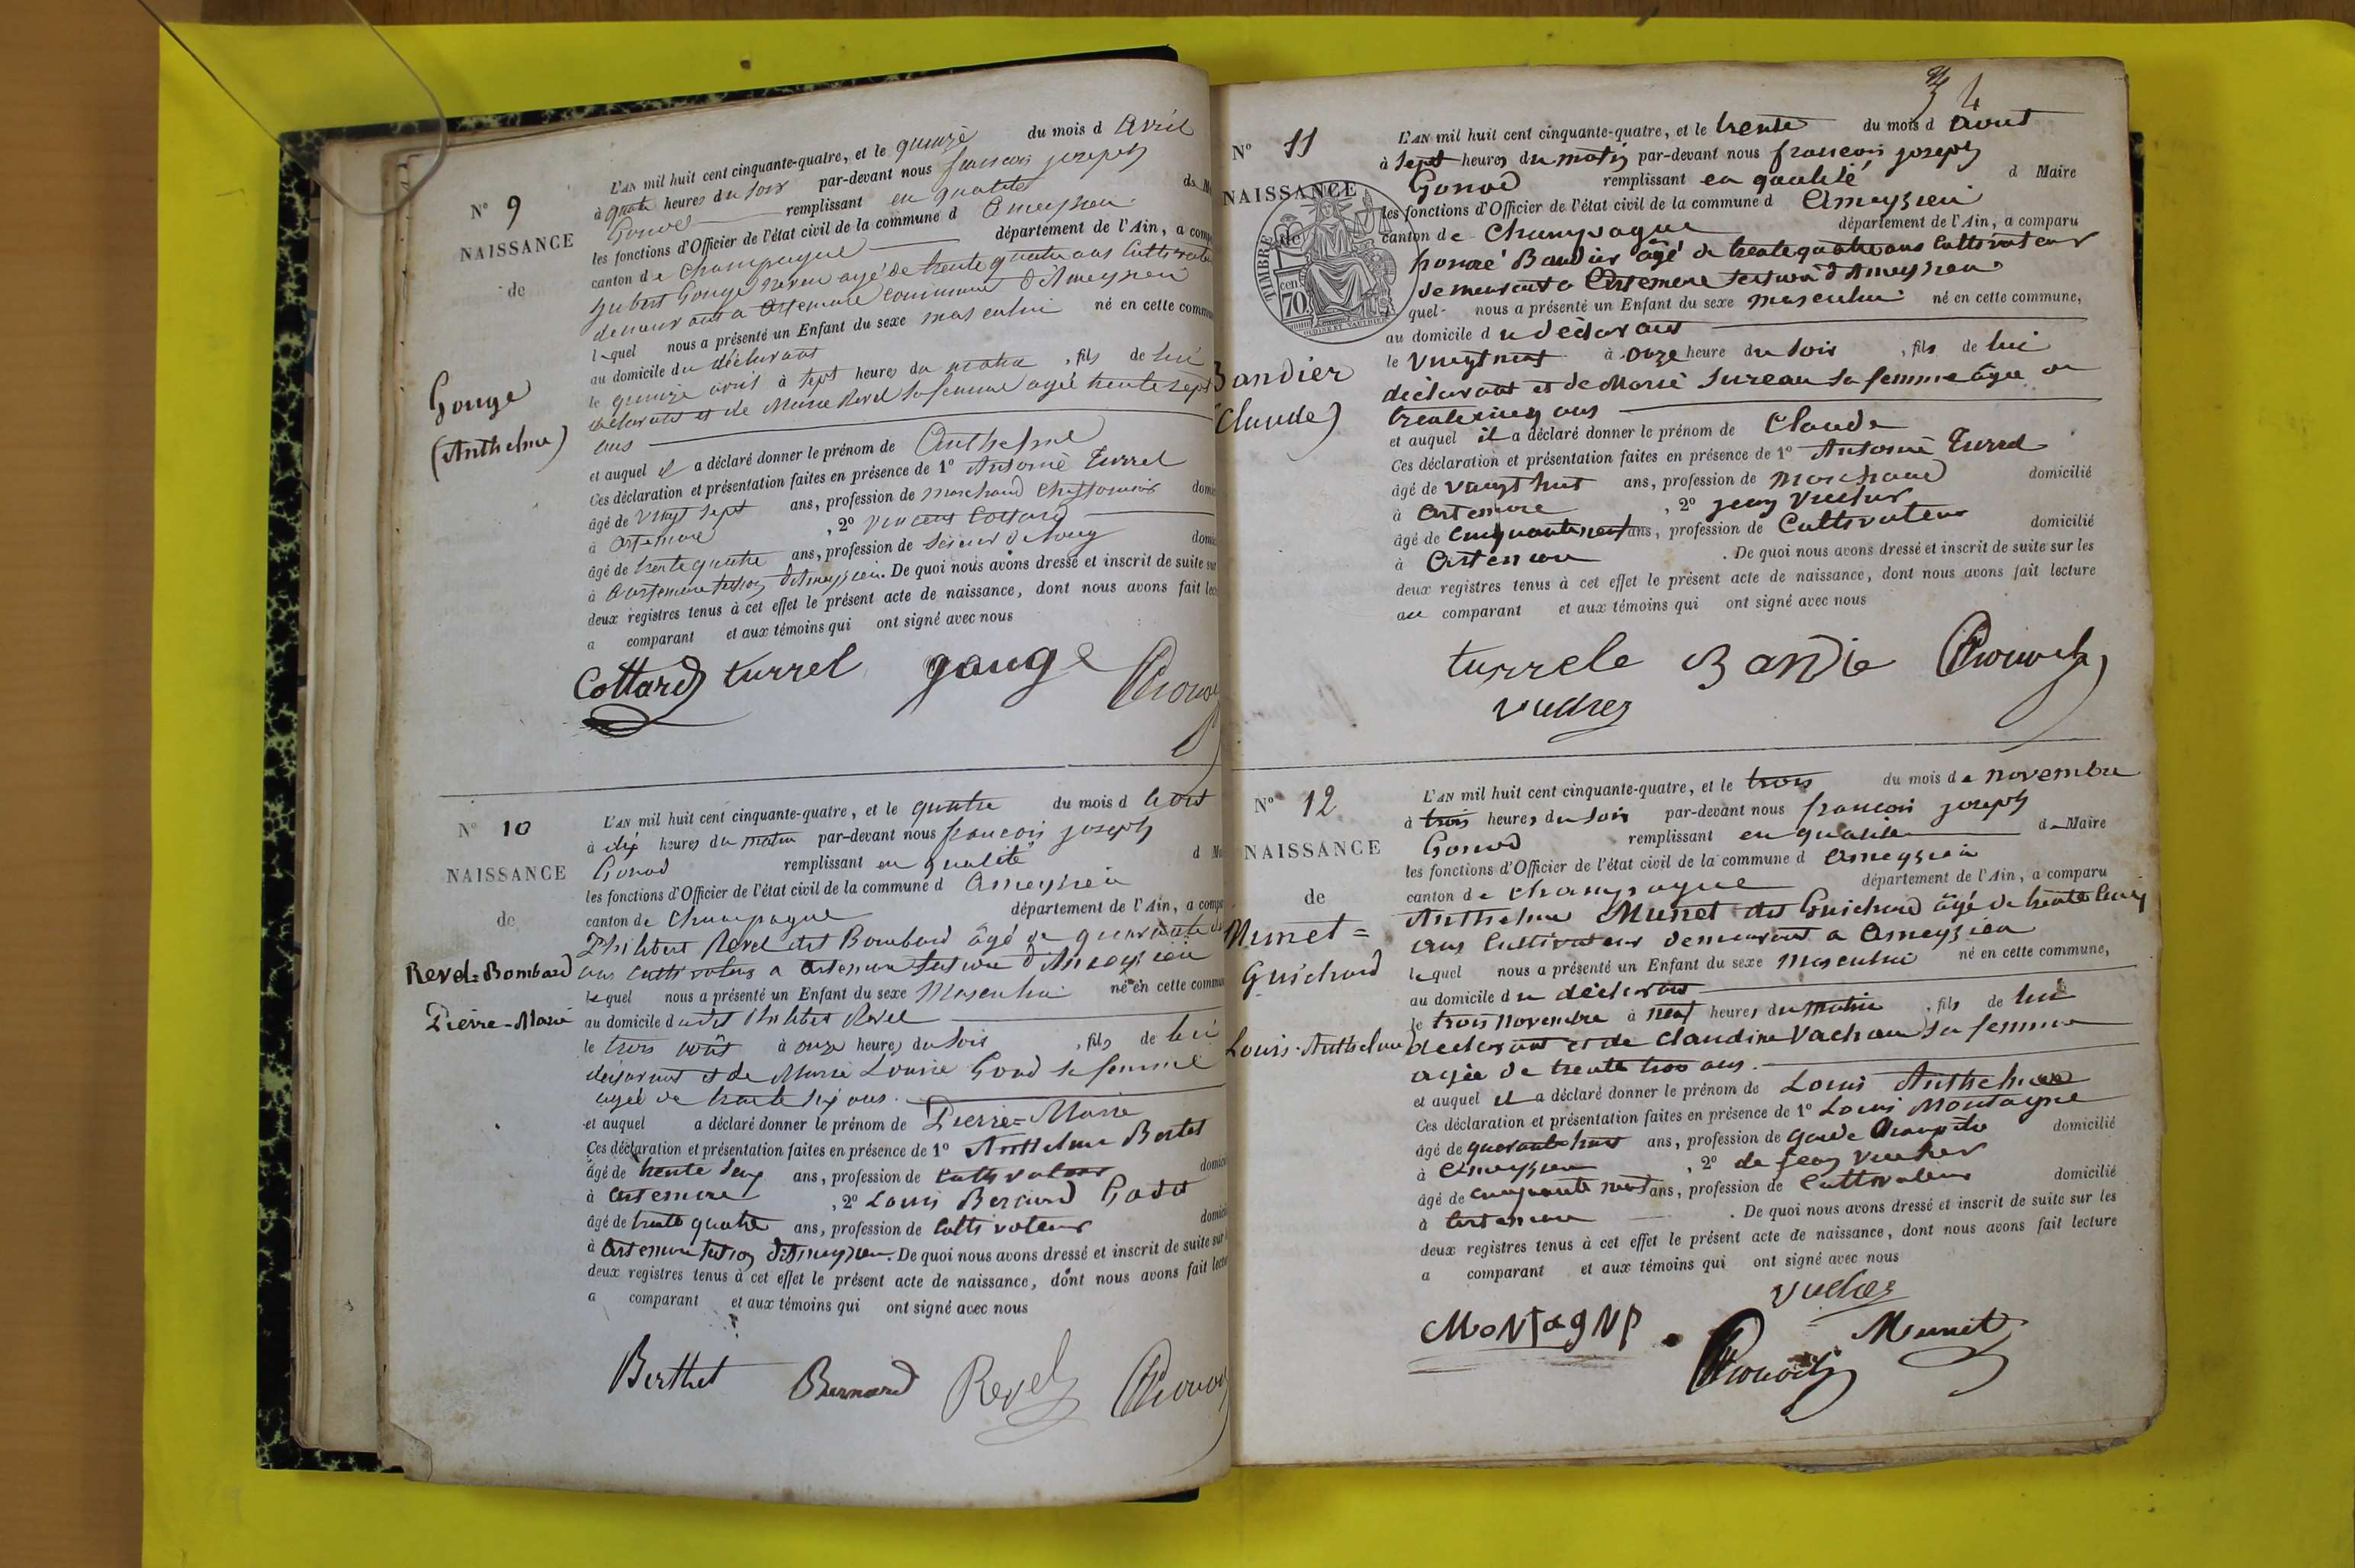 N° 9
NAISSANCE
de
Gouge
(Anthelme)
L'AN mil huit cent cinquante-quatre, et le quinze du mois d Avril
à quatre heures du soir par-devant nous francois joseph
Gonod remplissant en qualité de M
les fonctions d'Officier de l'état civil de la commune d Ameyzieu
canton de Champagne département de l'Ain, a comp
hubert Gouge neveu agé de trente quatre ans Cultivateur
demeurant a Artemare commune d'Ameyzieu
lequel nous a présenté un Enfant du sexe masculin né en cette commu
au domicile du déclarant
le quinze avril à sept heures du matin, fils de lui
déclarant et de Marie Revel sa femme agée trente sept
ans
et auquel il a déclaré donner le prénom de Anthelme
Ces déclaration et présentation faites en présence de 1° Antoine Turrel
âgé de vingt sept ans, profession de marchand Chiffonnier domic
à Artemare, 2° vincent Cottard
âgé de trente quatre ans, profession de Scieur de long domic
à Artemare d'Ameyzieu. De quoi nous avons dressé et inscrit de suite sur
deux registres tenus à cet effet le présent acte de naissance, dont nous avons fait lec
a comparant et aux témoins qui ont signé avec nous
Cottard turrel gouge Gonod
N° 10
NAISSANCE
de
Revel=Bombard
Pierre-Marie
L'AN mil huit cent cinquante-quatre, et le quatre du mois d Aout
à dix heures du matin par-devant nous francois joseph
Gonod remplissant en qualité d M
les fonctions d'Officier de l'état civil de la commune d Ameyzieu
canton de Champagne département de l'Ain, a comp
Philibert Revel dit Bombard âgé de quarante
ans cultivateur a Artemare d'Ameyzieu
lequel nous a présenté un Enfant du sexe Masculin né en cette commu
au domicile dudit Philibert Revel
le trois août à onze heures du soir, fils de lui
déclarant et de Marie Louise Godd sa femme
agée de trente six ans.
et auquel a déclaré donner le prénom de Pierre=Marie
Ces déclaration et présentation faites en présence de 1° Anthelme Bertet
âgé de trente ans, profession de Cultivateur domic
à Artemare, 2° Louis Bernard
âgé de trente quatre ans, profession de Cultivateur domic
à Artemare d'Ameyzieu. De quoi nous avons dressé et inscrit de suite sur
deux registres tenus à cet effet le présent acte de naissance, dont nous avons fait lectu
a comparant et aux témoins qui ont signé avec nous
Berthet Bernard Revel Gonod
34
N° 11
NAISSANCE
de
TIMBRE
70 cent
Bandier
(Claude)
L'AN mil huit cent cinquante-quatre, et le trente du mois d Aout
à sept heures du matin par-devant nous francois joseph
Gonod remplissant en qualité d Maire
les fonctions d'Officier de l'état civil de la commune d Ameyzieu
canton de Champagne département de l'Ain, a comparu
honoré Bandier âgé de trente quatre ans Cultivateur
demeurant a Artemare d'Ameyzieu
quel nous a présenté un Enfant du sexe masculin né en cette commune,
au domicile du déclarant
le vingt neuf à onze heure du soir, fils de lui
déclarant et de Marie Sureau sa femme âgée de
trente cinq ans
et auquel il a déclaré donner le prénom de Claude
Ces déclaration et présentation faites en présence de 1° Antoine Turrel
âgé de vingt huit ans, profession de Marchand domicilié
à Artemare, 2° jean Vucher
âgé de cinquante neuf ans, profession de Cultivateur domicilié
à Artemare. De quoi nous avons dressé et inscrit de suite sur les
deux registres tenus à cet effet le présent acte de naissance, dont nous avons fait lecture
au comparant et aux témoins qui ont signé avec nous
turrele Bandie Gonod
vucher
N° 12
NAISSANCE
de
Munet=
Guichard
Louis-Anthelme
L'AN mil huit cent cinquante-quatre, et le trois du mois de novembre
à trois heures du soir par-devant nous francois joseph
Gonod remplissant en qualité de Maire
les fonctions d'Officier de l'état civil de la commune d Ameyzieu
canton de Champagne département de l'Ain, a comparu
Anthelme Munet dit Guichard âgé de trente cinq
ans Cultivateur demeurant a Ameyzieu
lequel nous a présenté un Enfant du sexe masculin né en cette commune,
au domicile du déclarant
le trois novembre à neuf heures du matin, fils de lui
déclarant et de Claudine Vachau sa femme
agée de trente trois ans.
et auquel il a déclaré donner le prénom de Louis Anthelme
Ces déclaration et présentation faites en présence de 1° Louis Montagne
âgé de quarante huit ans, profession de garde champêtre domicilié
à Ameyzieu, 2° de jean Vucher
âgé de cinquante neuf ans, profession de Cultivateur domicilié
à Artemare. De quoi nous avons dressé et inscrit de suite sur les
deux registres tenus à cet effet le présent acte de naissance, dont nous avons fait lecture
a comparant et aux témoins qui ont signé avec nous
vucher
MoNTagNe Gonod Munet